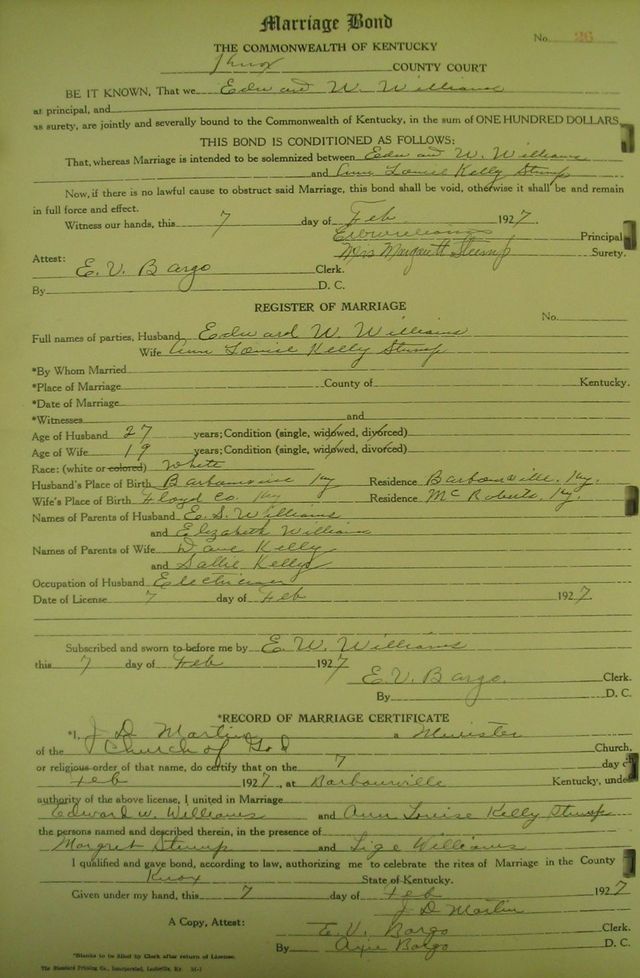 Marriage Bond
No. 26
THE COMMONWEALTH OF KENTUCKY
Knox COUNTY COURT
BE IT KNOWN, That we Edward W. Williams
as principal, and
as surety, are jointly and severally bound to the Commonwealth of Kentucky, in the sum of ONE HUNDRED DOLLARS
THIS BOND IS CONDITIONED AS FOLLOWS:
That, whereas Marriage is intended to be solemnized between Edward W. Williams
and Ann Louise Kelly Stump
Now, if there is no lawful cause to obstruct said Marriage, this bond shall be void, otherwise it shall be and remain
in full force and effect.
Witness our hands, this 7 day of Feb 1927
E W Williams Principal
Mrs Margarett Stump Surety.
Attest:
E. V. Bargo Clerk.
By D. C.
REGISTER OF MARRIAGE
No.
Full names of parties, Husband Edward W. Williams
Wife Ann Louise Kelly Stump
*By Whom Married
*Place of Marriage County of Kentucky.
*Date of Marriage
*Witnesses and
Age of Husband 27 years; Condition (single, widowed, divorced)
Age of Wife 19 years; Condition (single, widowed, divorced)
Race: (white or colored) White
Husband's Place of Birth Barbourville Ky Residence Barbourville, Ky.
Wife's Place of Birth Floyd Co. Ky Residence McRoberts, Ky.
Names of Parents of Husband E. S. Williams
and Elizabeth Williams
Names of Parents of Wife Dave Kelly
and Sallie Kelly
Occupation of Husband Electrician
Date of License 7 day of Feb 1927
Subscribed and sworn to before me by E. W. Williams
this 7 day of Feb 1927
E. V. Bargo. Clerk.
By D. C.
*RECORD OF MARRIAGE CERTIFICATE
*I, J D Martin a Minister
of the Church of God Church,
or religious order of that name, do certify that on the 7 day
Feb 1927, at Barbourville Kentucky, under
authority of the above license, I united in Marriage
Edward W. Williams and Ann Louise Kelly Stump
the persons named and described therein, in the presence of
Margret Stump and Lige Williams
I qualified and gave bond, according to law, authorizing me to celebrate the rites of Marriage in the County
Knox State of Kentucky.
Given under my hand, this 7 day of Feb 1927
J D Martin
A Copy, Attest: E. V. Bargo Clerk.
By Bargo D. C.
*Blanks to be filled by Clerk after return of License.
The Standard Printing Co., Incorporated, Louisville, Ky